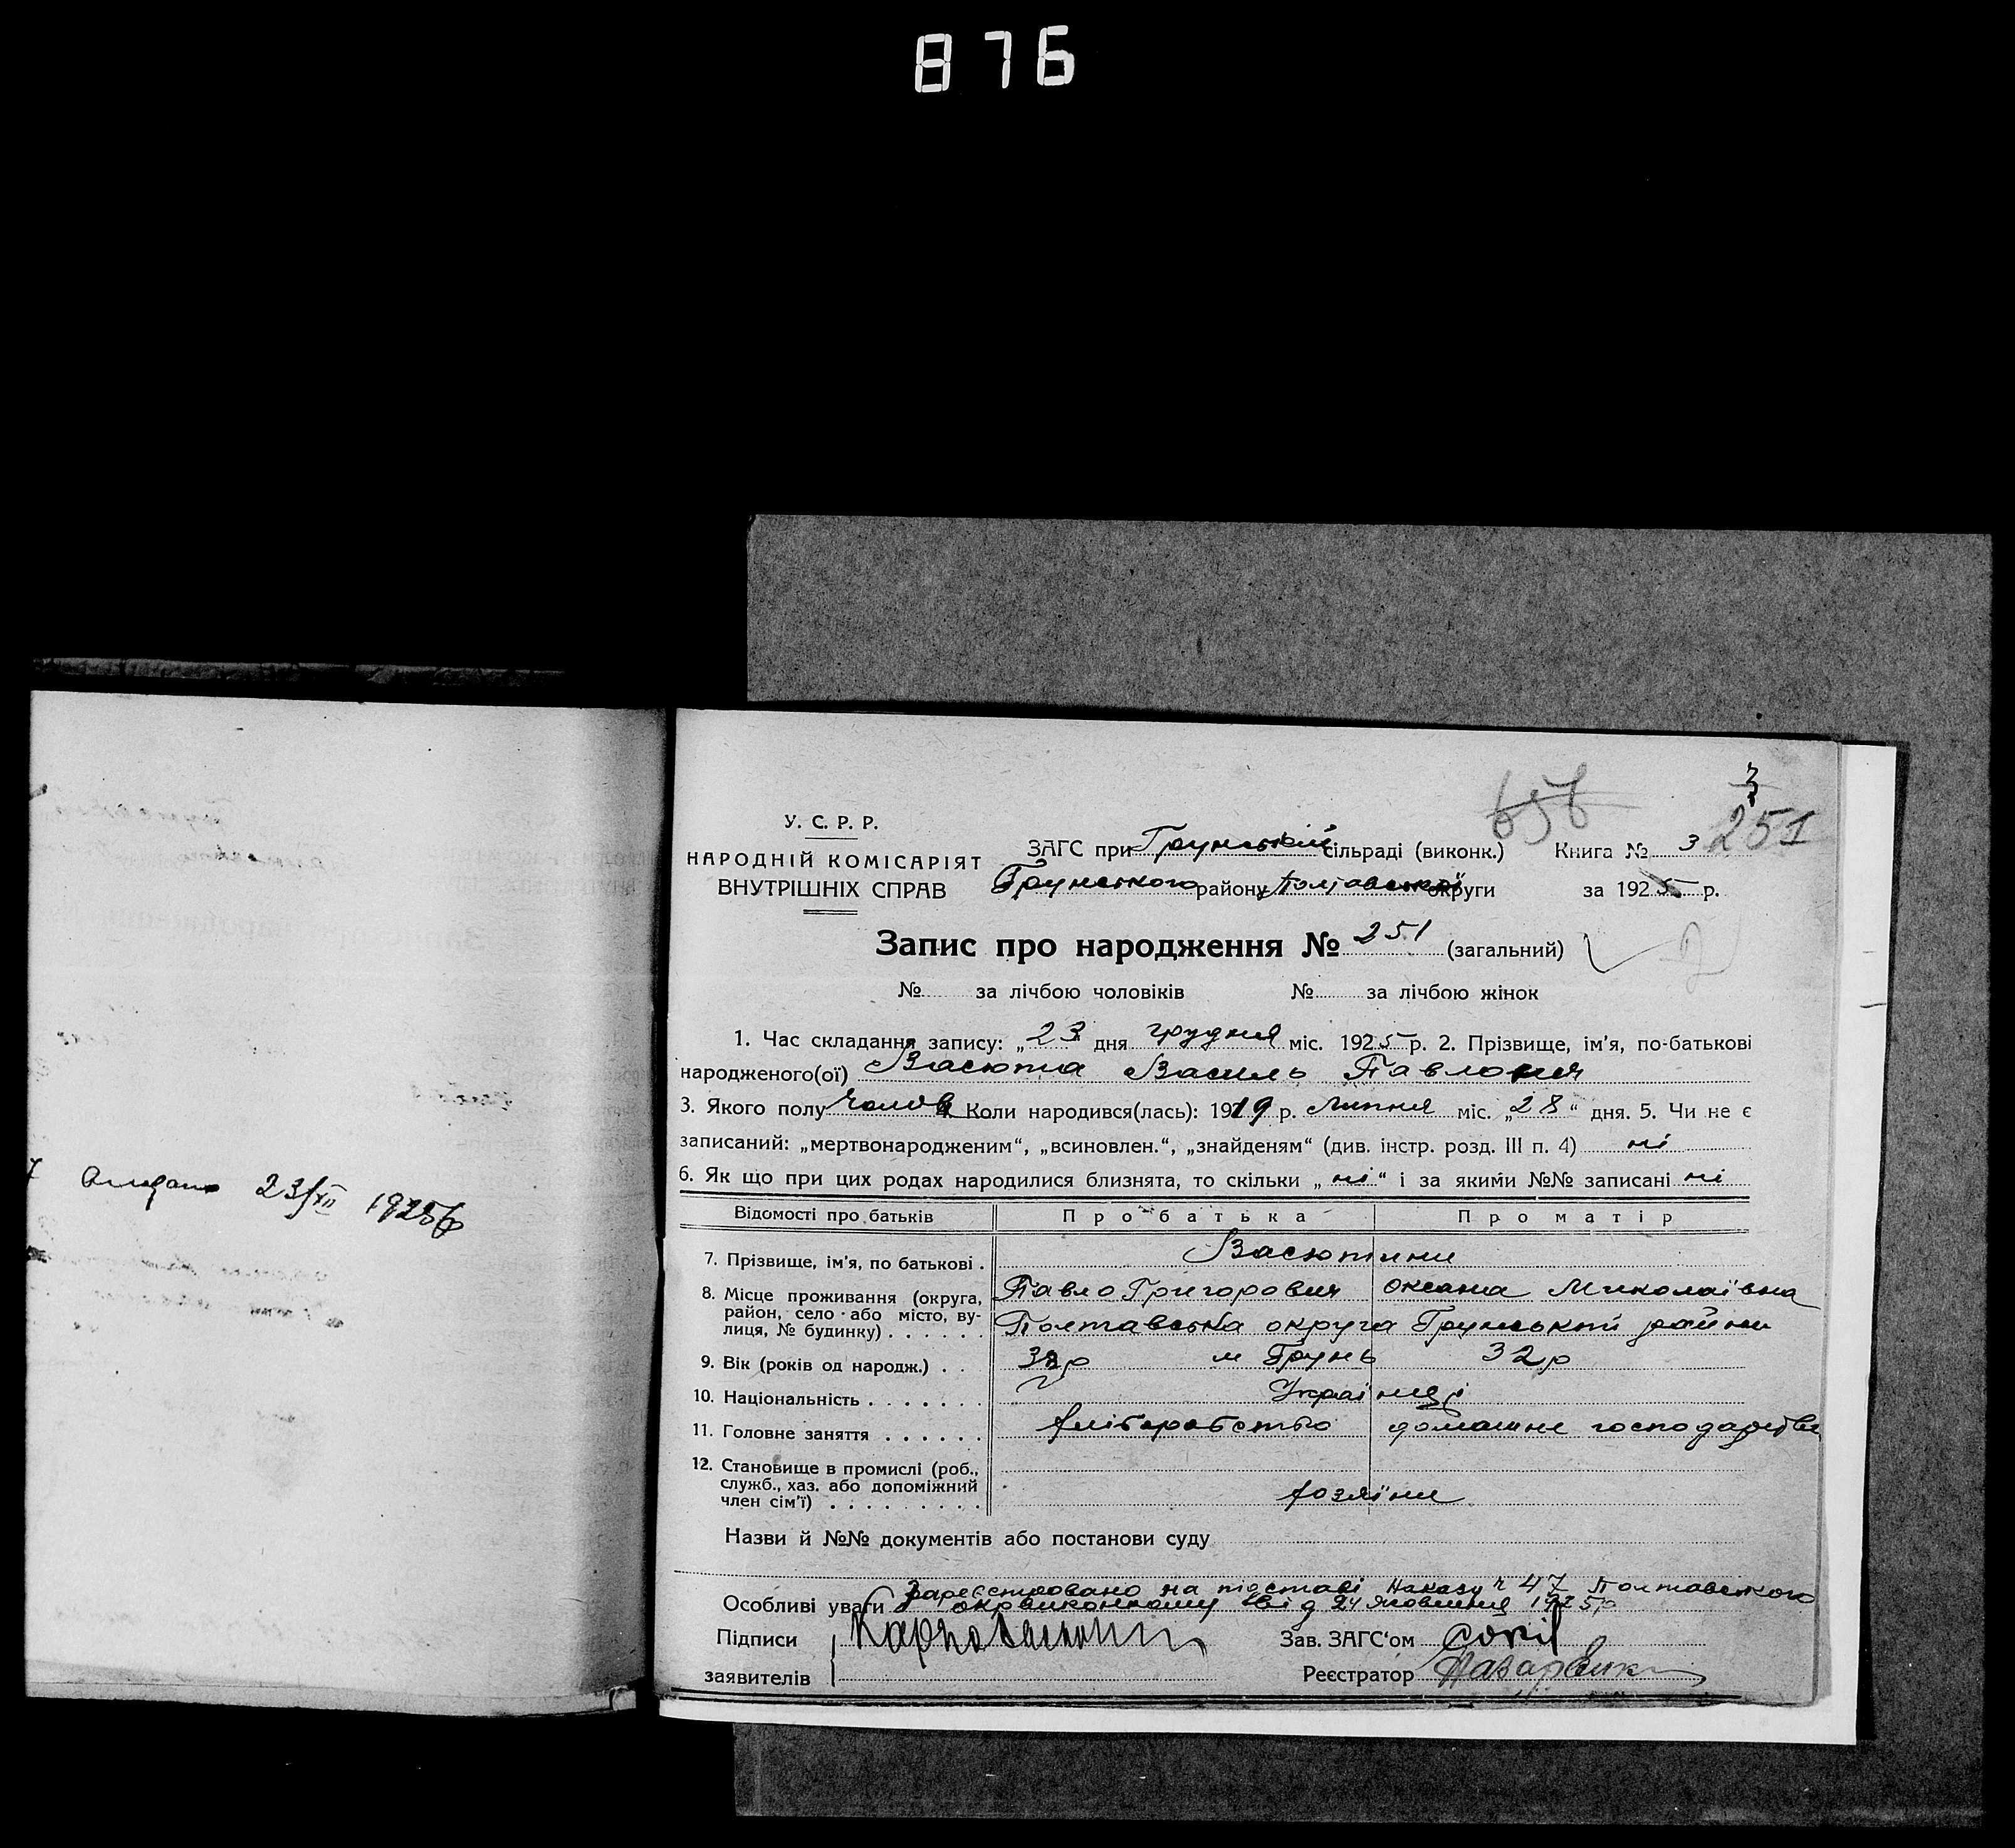 876
23/XII 1925р
656
251
У. С. Р. Р.
НАРОДНІЙ КОМІСАРІЯТ
ВНУТРІШНІХ СПРАВ
ЗАГС при Грунській сільраді (виконк.) Книга № 3
Грунського району Полтавської округи за 1925 р.
Запис про народження № 251 (загальний)
№ за лічбою чоловіків № за лічбою жінок
1. Час складання запису: „23 дня грудня міс. 1925 р. 2. Прізвище, ім'я, по-батькові
народженого(ої) Васюта Василь Павлович
3. Якого полу Чолов 4. Коли народився(лась): 1919 р. Липня міс. „28“ дня. 5. Чи не є
записаний: „мертвонародженим“, „всиновлен.“, „знайденям“ (див. інстр. розд. III п. 4) ні
6. Як що при цих родах народилися близнята, то скільки „ні“ і за якими №№ записані ні
Відомості про батьків Про батька Про матір
7. Прізвище, ім'я, по батькові . Васютини
8. Місце проживання (округа, Павло Григорович Оксана Миколаївна
район, село або місто, ву-
лиця, № будинку) . . . . . . Полтавська округа Грунський район
9. Вік (років од народж.) . . 38р м Грунь 32р
10. Національність . . . . . . . Українці
11. Головне заняття . . . . . . хліборобство домашнє господарство
12. Становище в промислі (роб.,
служб., хаз. або допоміжний
член сім'ї) . . . . . . . . . хозяїни
Назви й №№ документів або постанови суду
Зареєстровано на підставі Наказу ч 47 Полтавського
Особливі уваги окрвиконкому від 24 жовтня 1925р
Підписи Зав. ЗАГС'ом
заявителів Реєстратор